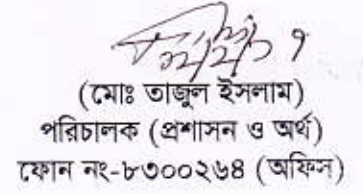 (মোঃ তাজুল ইসলাম)
পরিচালক (প্রশাসন ও অর্থ)
ফোন নং-৮৩০০২৬৪ (অফিস)